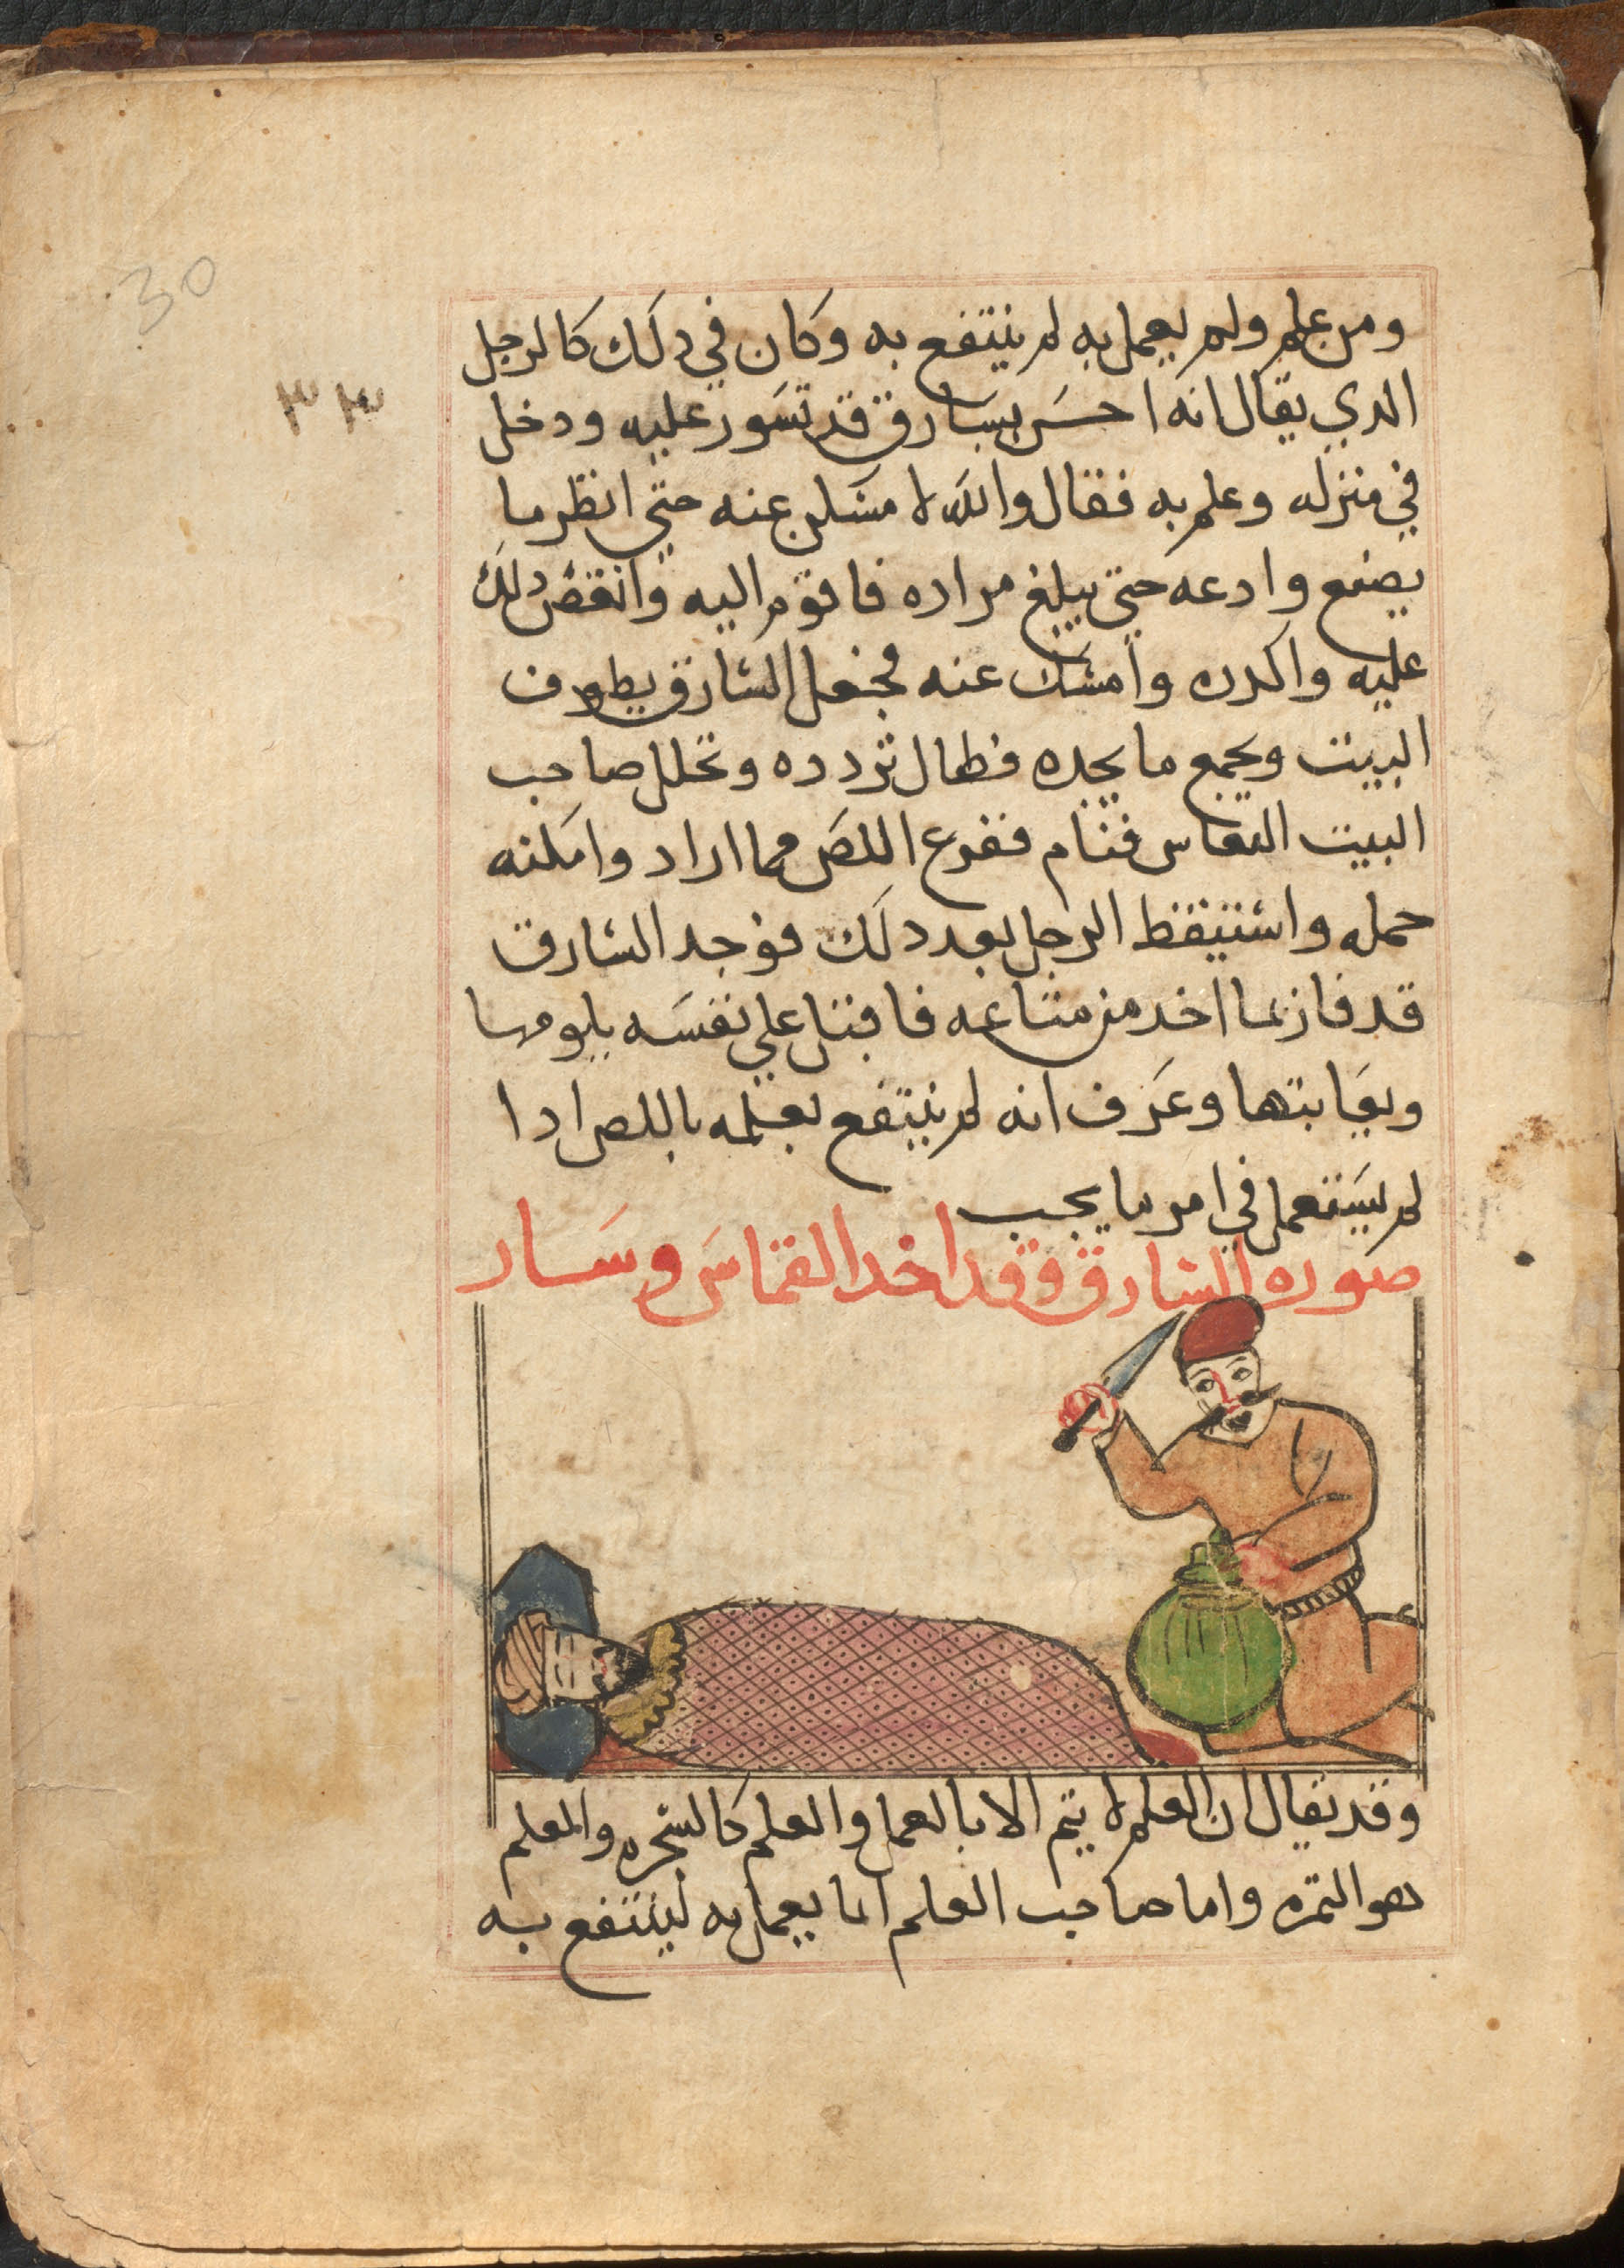 30
٣٣
ومن علم ولم يعمل به لم ينتفع به وكان في دلك كالرجل
الدي يقال انه احس بسارق قد تسور عليه ودخل
في منزله وعلم به فقال والله لا مسكن عنه حتي انظر ما
يصنع وادعه حتي يبلغ مراده فاقوم اليه وانقض دلك
عليه واكدره وامسك عنه فجعل السارق يطوف
البيت ويجمع ما يجده فطال تردده وتخلل صاحب
البيت النعاس فنام ففرع اللص مما اراد وامكنه
حمله واستيقظ الرجل بعد دلك فوجد السارق
قد فاز بما اخد من متاعه فاقبل علي نفسه يلومها
ويعابتها وعرف انه لم ينتفع بعلمه باللص ادا
لم يستعمل في امر ما يجب
صوره السارق وقد اخد القماس وسار
وقد يقال ان العلم لا يتم الا بالعمل والعلم كالشجره والمعلم
هو الثمره واما صاحب العلم انما يعمل به لينتفع به